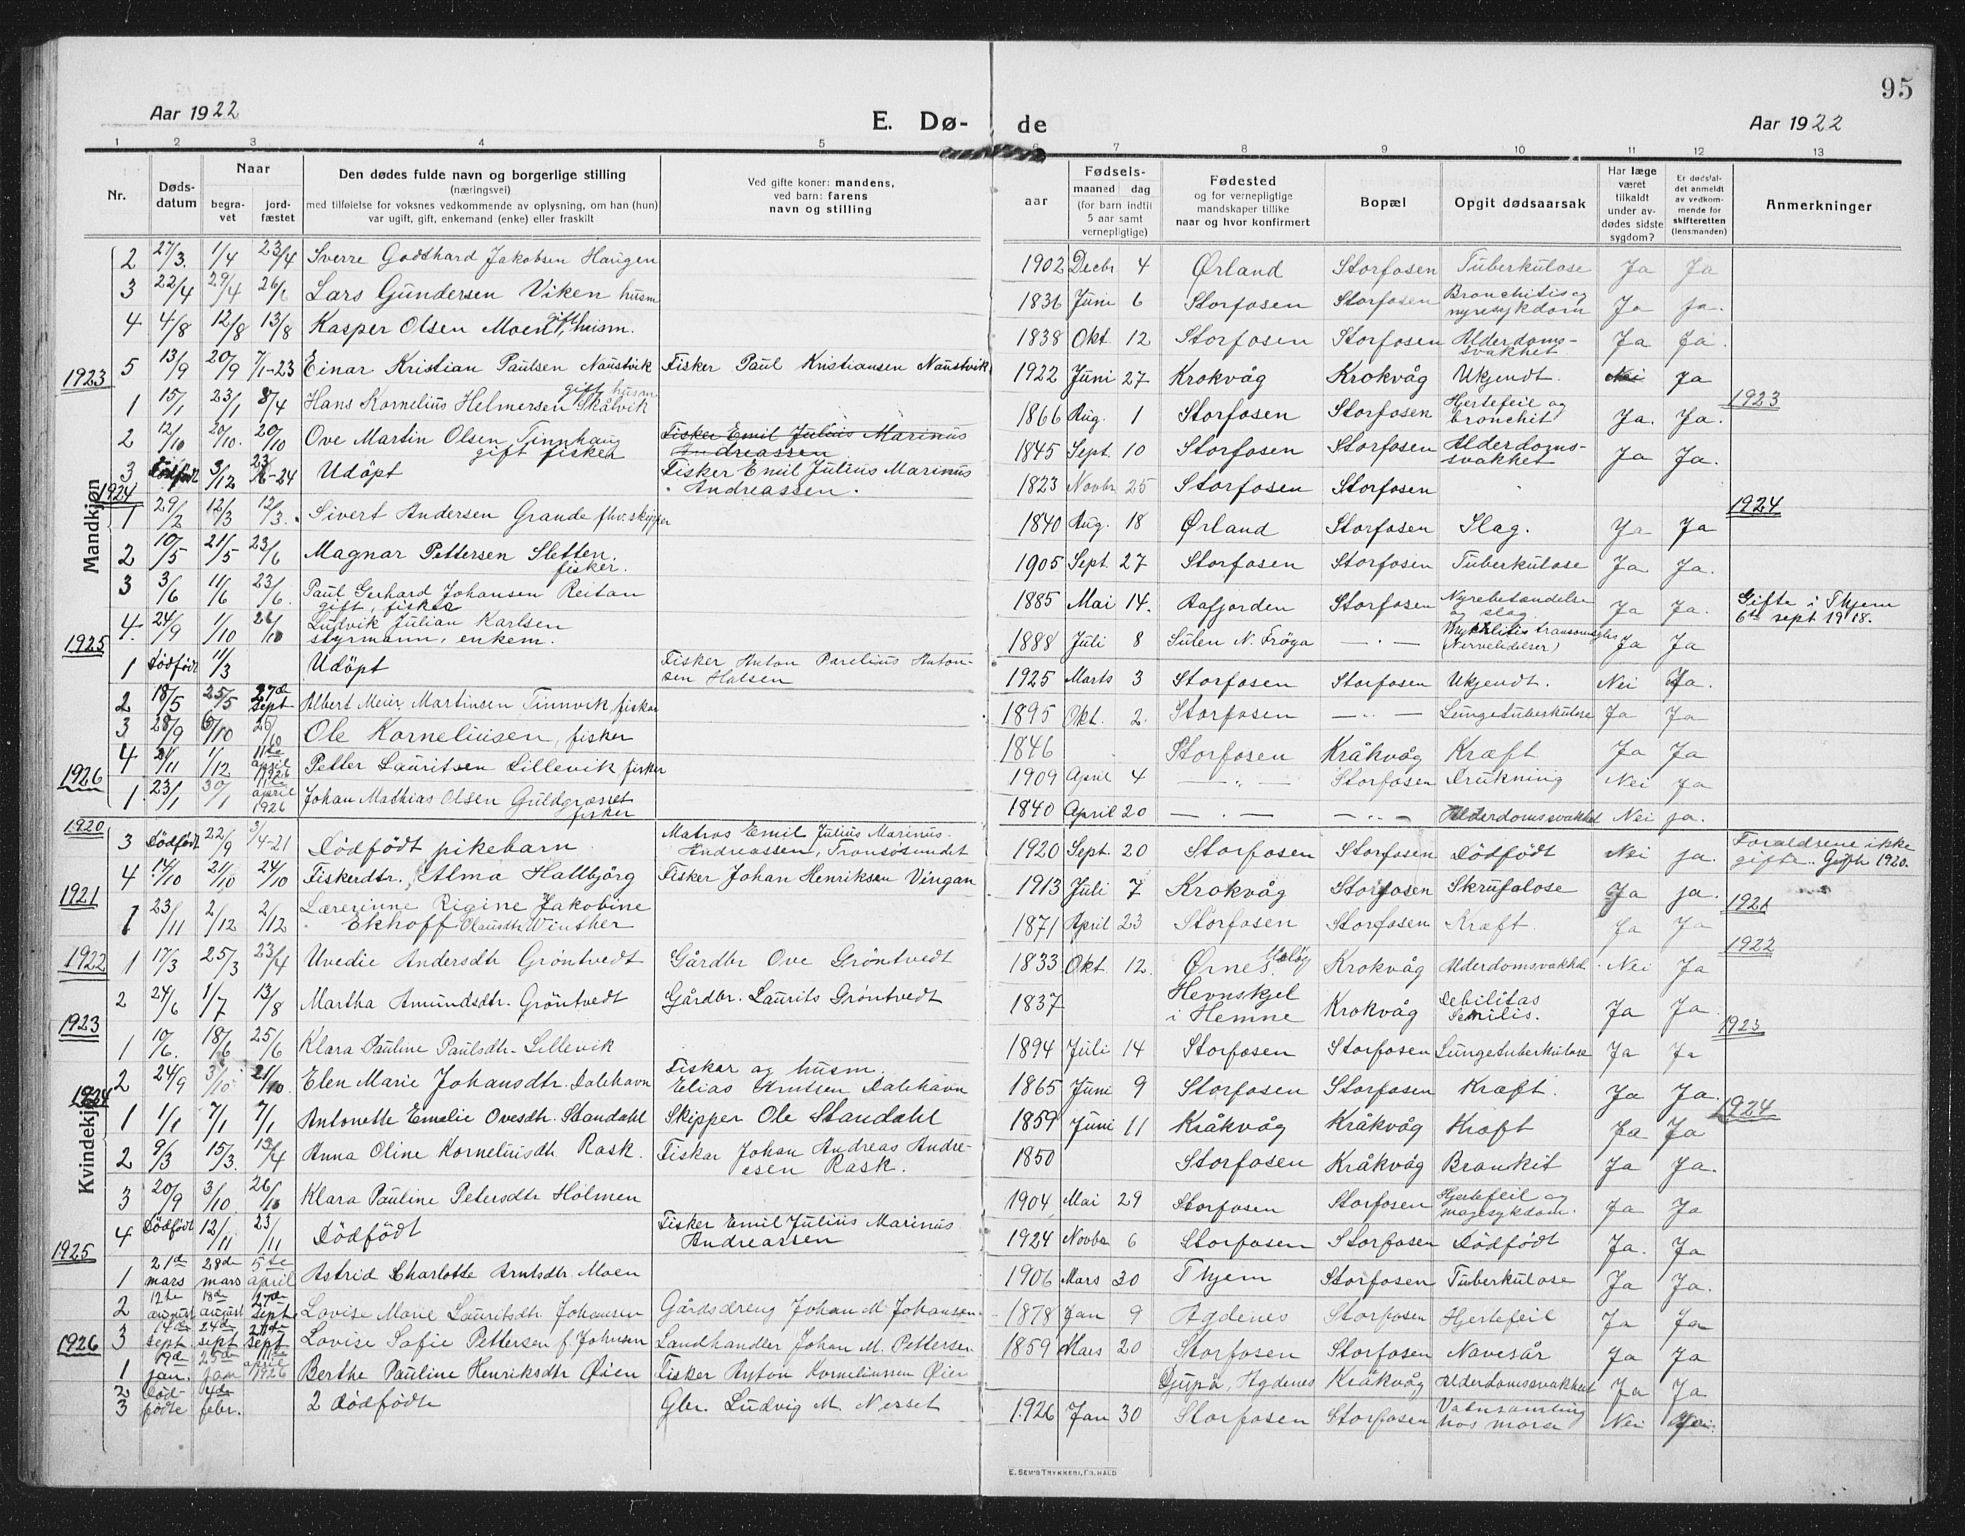 95
Aar 1922
E. Dø- de
Aar 1922
1 2 3 4 5 6 7 8 9 10 11 12 13
Nr.
Døds-
datum
Naar
begra-
vet
jord-
fæstet
Den dødes fulde navn og borgerlige stilling
(næringsvei)
med tilføielse for voksnes vedkommende av oplysning, om han (hun)
var ugift, gift, enkemand (enke) eller fraskilt
Ved gifte koner: mandens,
ved barn: farens
navn og stilling
Fødsels-
aar
maaned dag
(for barn indtil
5 aar samt
vernepligtige)
Fødested
og for vernepligtige
mandskaper tillike
naar og hvor konfirmert
Bopæl
Opgit dødsaarsak
Har læge
været
tilkaldt
under av-
dødes sidste
sygdom?
Er dødsfal-
det anmeldt
av vedkom-
mende for
skifteretten
(lensmanden)
Anmerkninger
Mandkjøn
2 27/3. 1/4 23/4 Sverre Godthard Jakobsen Haugen 1902 Decbr 4 Ørland Storfosen Tuberkulose Ja Ja
3 22/4 29/4 26/6 Lars Gundersen Viken husm 1836 Juni 6 Storfosen Storfosen Bronchitis og nyresykdom Ja Ja.
4 4/8 12/8 13/8 Kasper Olsen Moen, gift husm. 1838 Okt. 12 Storfosen Storfosen Alderdoms-svakhet Ja Ja.
5 13/9 20/9 7/1-23 Einar Kristian Paulsen Naustvik Fisker Paul Kristiansen Naustvik 1922 Juni 27 Krokvåg Krokvåg Ukjendt. Nei Ja
1923
1 15/1 23/1 8/4 Hans Kornelius Helmersen Skålvik gift husm 1866 Aug. 1 Storfosen Storfosen Hjertefeil og bronchit Ja. Ja. 1923
2 12/10 20/10. 20/10 Ove Martin Olsen Tinnhaug gift fisker Fisker Emil Julius Marinus Andreassen 1845 Sept. 10 Storfosen Storfosen Alderdoms-svakhet Ja Ja.
3 Dödfödt 3/12 23/6-24 Udöpt Fisker Emil Julius Marinus Andreassen. 1823 Novbr 25 Storfosen Storfosen
1924
1 29/2 12/3 12/3. Sivert Andersen Grande fhv. skipper 1840 Aug. 18 Ørland Storfosen Slag. Ja Ja 1924
2 10/5 21/5 23/6 Magnar Pettersen Sletten. fisker. 1905 Sept. 27 Storfosen Storfosen Tuberkulose Ja Ja.
3 3/6 11/6 23/6. Paul Gerhard Johansen Reitan gift, fisker 1885 Mai 14. Aafjorden Storfosen Nyrebetændelse og slag Ja Ja. Gifte i Thjem 6te sept 1918.
4. 24/9 1/10 26/10 Ludvik Julian Karlsen styrmann, enkem. 1888 Juli 8 Sulen N. Fröya — „ — (Nervelidelser) Ja Ja
1925
1 Dödfödt 11/3 Udöpt Fisker Anton Parelius Anton-sen Halsen 1925 Marts 3 Storfosen Storfosen Ukjendt. Nei Ja.
2 18/5 25/5 27de Sept Albert Meier Martinsen Tinnvik fisker 1895 Okt. 2. Storfosen — „ — Lungetuberkulose Ja Ja
3 28/9 6/10 25/10 Ole Korneliusen, fisker 1846 Storfosen Kråkvåg Kræft Ja Ja
4 21/11 1/12 11te april 1926 Petter Lauritsen Lillevik fisker 1909 April 4 — „ — Storfosen Drukning Nei Ja
1926
1. 23/1 30/1 11te april 1926 Johan Mathias Olsen Guldgræsset fisker 1840 April 20 — „ — — „ — Alderdomssvakhet Nei ja.
Kvindekjøn
1920
3 Dödfödt 22/9 3/4-21 Dödfödt pikebarn Matros Emil Julius Marinus Andreassen, Transösundet 1920 Sept. 20 Storfosen Storfosen Dödfödt Nei ja. Forældrene ikke gifte. Gift 1920.
4 14/10 21/10 24/10 Fiskerdtr. Alma Hallbjörg Fisker Johan Henriksen Vingan 1913 Juli 7 Krokvåg Storfosen Skrufulose Ja ja.
1921
1 23/11 2/12 2/12 Lærerinne Rigine Jakobine Ekhoff Olausdtr. Winther 1871 April 23 Storfosen Storfosen Kræft. Ja Ja 1921
1922
1 17/3 25/3 23/4 Uvedie Andersdtr Gröntvedt Gårdbr Ove Gröntvedt 1833 Okt. 12. Ørnes, Krokvåg Alderdomsvakhd. Nei Ja 1922
2 24/6 1/7 13/8 Martha Amundsdtr. Gröntvedt Gårdbr. Laurits Gröntvedt 1837 Hevnskjel i Hemne Krokvåg Debilitas Senilis. Ja Ja
1923
1 10/6. 18/6 25/6 Klara Pauline Paulsdtr. Lillevik 1894 Juli 14 Storfosen Storfosen Lungetuberkulose Ja Ja 1923
2 24/9 3/10 21/10 Elen Marie Johansdtr. Dalehavn Fisker og husm. Elias Knutsen Dalehavn 1865 Juni 9 Storfosen Storfosen Kræft. Ja Ja.
1924
1 1/1 7/1 7/1 Antonette Emelie Ovesdtr. Standahl Skipper Ole Standahl 1859 Juni 11 Kråkvåg Kråkvåg Kræft Ja Ja 1924
2 9/3 15/3. 13/4 Anna Oline Korneliusdtr Rask. Fisker Johan Andreas Andre-esen Rask. 1850 Storfosen Kråkvåg Bronkit Ja Ja.
3 20/9 3/10 26/10 Klara Pauline Petersdtr Holmen 1904 Mai 29 Storfosen Storfosen Hjertefeil og mavesykdom. Ja Ja
4 Dödfödt 12/11 23/11 Dödfödt Fisker Emil Julius Marinus Andreassen 1924 Novbr 6 Storfosen Storfosen Dödfödt Ja. Ja
1925
1 21de mars 28de mars 5te april Astrid Charlotte Arntsdtr. Moen 1906 Mars 30 Thjem Storfosen Tuberkulose Ja Ja.
2 12te august 18de august 27de Sept. Lovise Marie Lauritsdtr. Johansen Gårdsdreng Johan M. Johansen. 1878 Jan 9 Agdenes Storfosen Hjertefeil Ja Ja
3 14de sept. 24de sept 27de sept Lovise Sofie Pettersen f. Johnsen Landhandler Johan M. Pettersen 1859 Mars 20 Storfosen Storfosen Navesår Ja Ja
1926
1 19de jan. 25de jan 11te april 1926 Berthe Pauline Henriksdtr Øien Fisker Anton Korneliussen Øien Djupå, Agdenes Kråkvåg Alderdomssvakhet Ja Ja
2 3 Död-födte 4de febr. 2 dödfödte Gbr. Ludvig M. Nesset 1926 Jan 30 Storfosen Storfosen Vatnsamling hos mora Nei Nei.
E. SEM'S TRYKKERI, FR.HALD